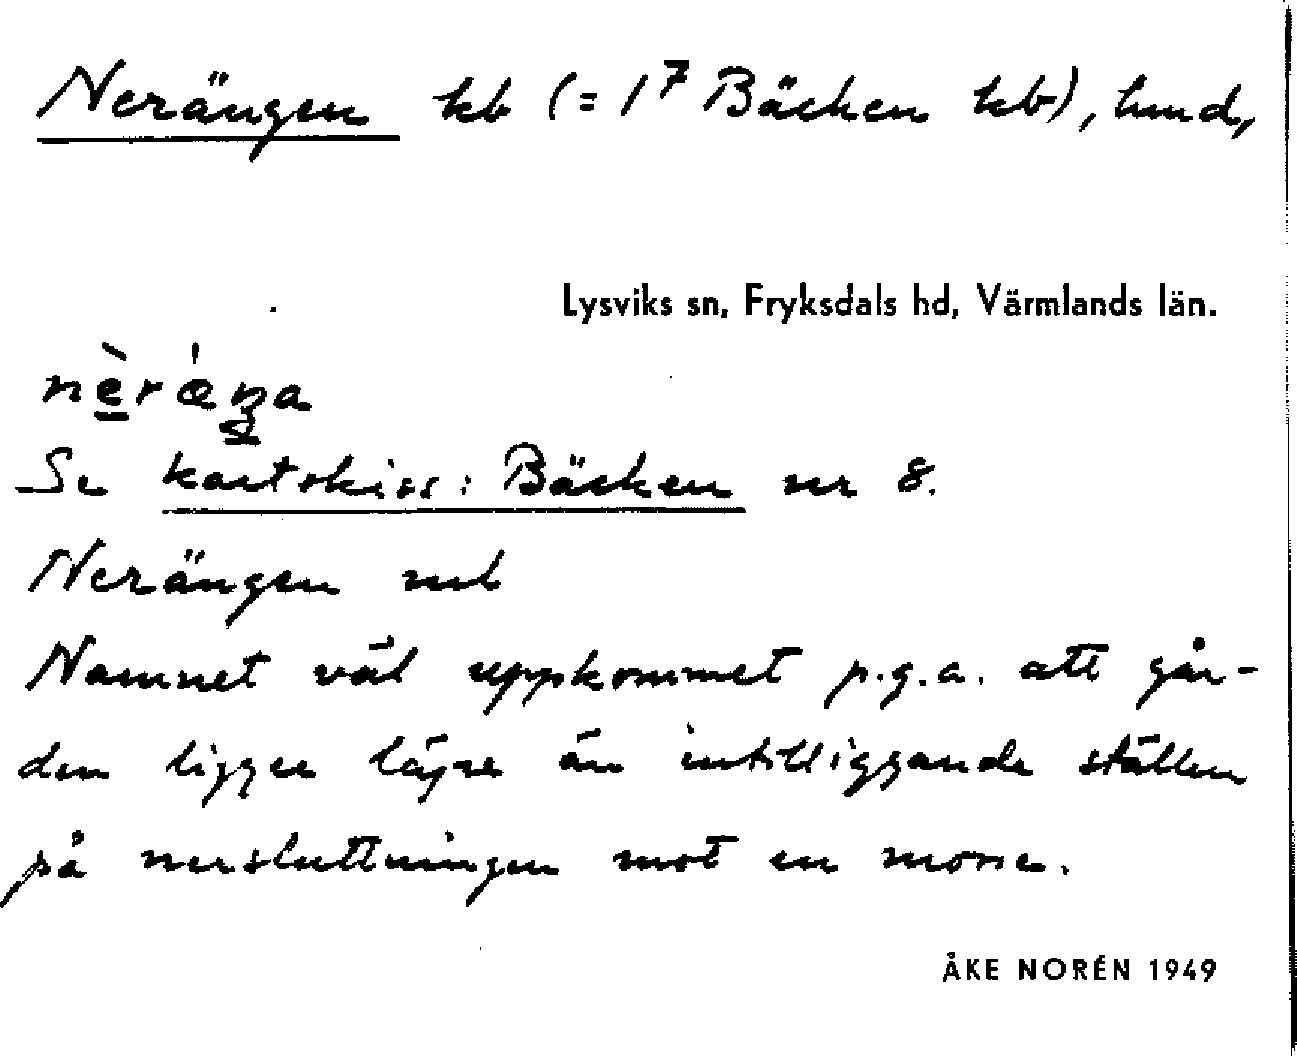 Nerängen kb (= 1⁷ Bäcken kb), hmd,
Lysviks sn, Fryksdals hd, Värmlands län.
Se kartskiss: Bäcken nr 8.
Nerängen uel
Namnet väl uppkommet p.g.a. att går-
den ligger lägre än intilliggande ställen
på nersluttningen mot en mosse.
ÅKE NORÉN 1949